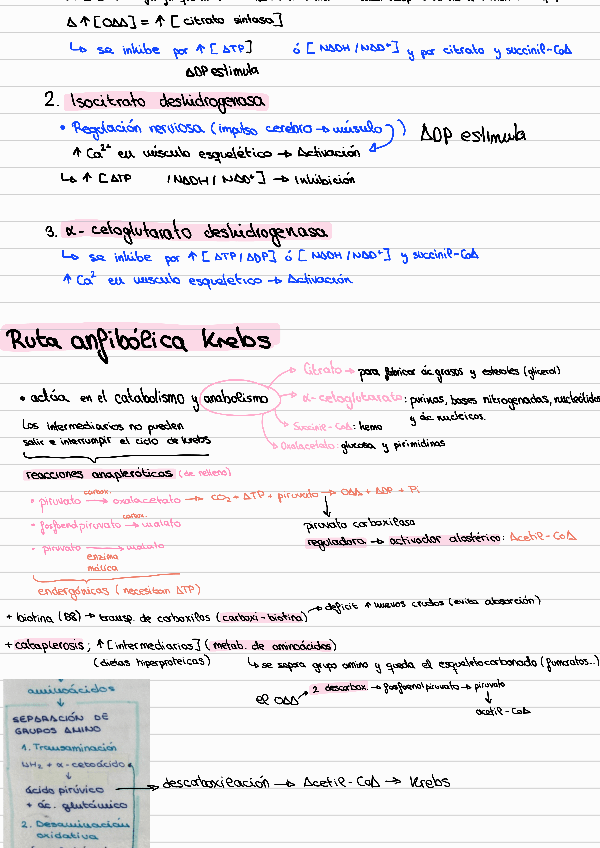 Δ ↑ [OAA] = ↑ [citrato sintasa]
↳ se inhibe por ↑ [ATP] ó [NADH/NAD⁺] y por citrato y succinil-CoA
ADP estimula
2. Isocitrato deshidrogenasa
• Regulación nerviosa (impulso cerebro → músculo) ADP estimula
↑ Ca²⁺ en músculo esquelético → Activación
↳ ↑ [ATP / NADH / NAD⁺] → Inhibición
3. α-cetoglutarato deshidrogenasa
↳ se inhibe por ↑ [ATP/ADP] ó [NADH/NAD⁺] y succinil-CoA
↑ Ca² en musculo esquelético → Activación
Ruta anfibólica Krebs
Citrato → para fabricar ác grasos y esteroles (glicerol)
• actúa en el catabolismo y anabolismo → α-cetoglutarato: purinas, bases nitrogenadas, nucleótidos
y ác nucleicos.
Los intermediarios no pueden
Succinil-CoA: hemo
salir e interrumpir el ciclo de krebs
Oxalacetato glucosa y pirimidinas
reacciones anapleróticas (de relleno)
• piruvato carbox. → oxalacetato → CO₂ + ATP + piruvato → OAA + ADP + Pi
• fosfoenolpiruvato carbox. → malato
piruvato carboxilasa
reguladora → activador alostérico: Acetil-CoA
• piruvato → malato
enzima
málica
endergónicas (necesitan ATP)
+ biotina (B8) → transp. de carboxilos (carboxi-biotina) → deficit ↑ huevos crudos (evita absorción)
+ cataplerosis; ↑ [intermediarios] (metab. de aminoácidos)
(dietas hiperproteicas) ↳ se separa grupo amino y queda el esqueleto carbonado (fumarato..)
el OAA → 2 descarbox. → fosfoenolpiruvato → piruvato
↓
acetil-CoA
aminoácidos
↓
SEPARACIÓN DE
GRUPOS AMINO
1. Transaminación
NH₂ + α-cetoácido
↓
ácido pirúvico → descarboxilación → Acetil-CoA → Krebs
+ ác. glutámico
2. Desaminación
oxidativa